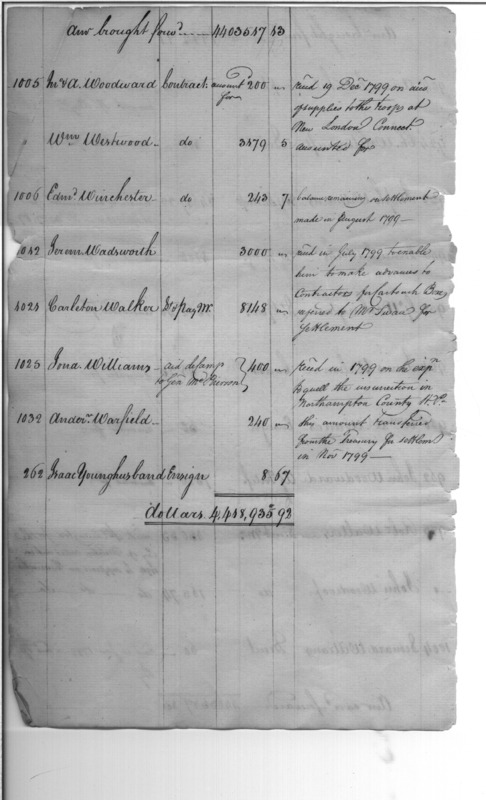 Amt brought forwd 44035.47 43
1005 Jno & A. Woodward Contract: amount for 200 recd 19 Decr 1799 on acco
of supplies to the troops at
New London Connect:
Wm Westwood do 3479 5 accounted for
1006 Edmd Winchester do 243 7 balance remaining on settlement
made in August 1799
1042 Jerem Wadsworth 3000 recd in July 1799 to enable
him to make advances to
Contractors for Cartouch Boxes
1021 Carleton Walker Dt. Pay Mr. 8148 referred to Mr Swan for
settlement
1025 Jona. Williams aid decamp 400 recd in 1799 on the expn
to Gen Mc Pherson to quell the insurrection in
Northampton County
1032 Anderw. Warfield 240 this amount transferred
from the Treasury for settlemt
in Nov 1799
262 Isaac Younghusband Ensign 8 67
dollars 4,448,935 92